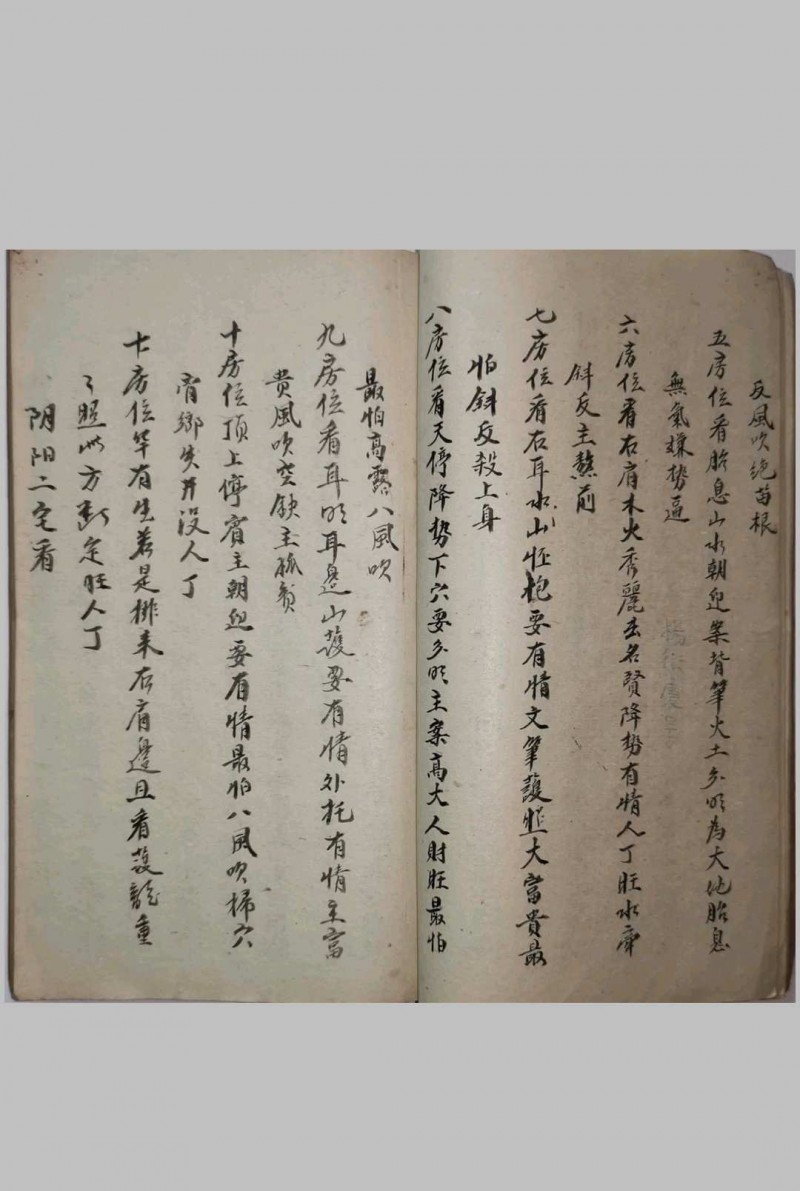 反風吹绝苗根
五房位看胎息山水朝迎案背筆火土分明為大地胎息
無氣嫌势逼
六房位看右肩木火秀麗出名賢降势有情人丁旺水牽
斜反主熬煎
七房位看右耳水山怀抱要有情文筆護照大富貴最
怕斜反殺上身
八房位看天停降势下穴要分明主案高大人財旺最怕
最怕高露八風吹
九房位看耳明耳邊山護要有情外托有情主富
貴風吹空缺主孤貧
十房位頂上停賓主朝迎要有情最怕八風吹掃穴
鄉失井没人丁
十房位罕有生若是排来右肩邊且看護龍重
照此方斷定旺人丁
阴阳二宅看